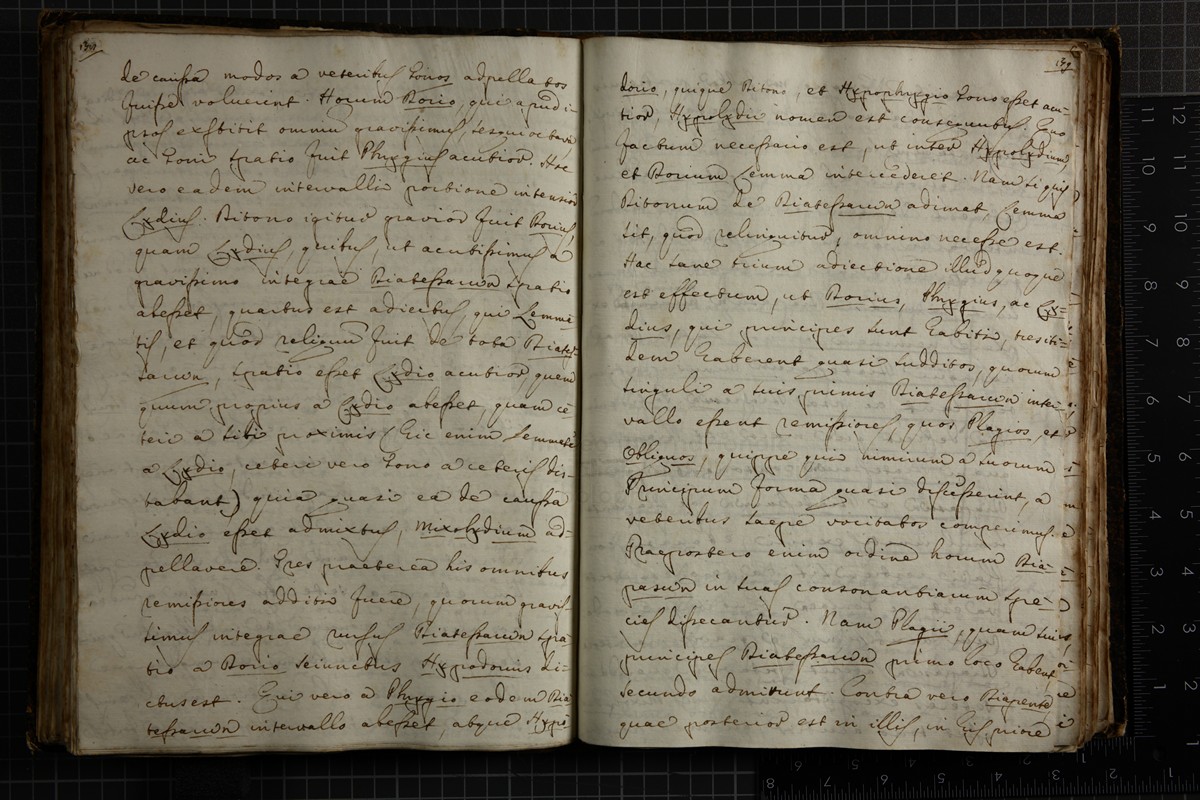 de caussa modos a veteribus Tonos adpellatos
fuisse voluerint. Horum Dorio, qui apud i-
psos exstitit omnium gravissimus, sesquioctava
ac Toni spatio fuit Phrygius acutior. Hoc
vero eadem intervalli portione intensior
Lydius. Ditono igitur gravior fuit Dorius
quam Lydius, quibus, ut acutissimus a
gravissimo integrae Diatessaron spatio
abesset, quartus est adiectus, qui Lemma-
tis, et quod reliquum fuit de tota Diates-
saron, spatio esset Lydio acutior, quem
quum propius a Lydio abesset, quam ce-
teri a sibi proximis (hic enim Lemmate
a Lydio, ceteri vero Tono a ceteris dis-
tabant) quia quasi ea de caussa
Lydio esset admixtus, Mixolydium ad-
pellavere. Tres praeterea his omnibus
remissiores additi fuere, quorum gravis-
simus integrae rursus Diatessaron spa-
tio a Dorio seiunctus Hypodorius di-
ctus est. Qui vero a Phrygio eodem Dia-
tessaron intervallo abesset, atque Hypo-
159
dorio, quique Ditono, et Hypophrygio Tono esset acu-
tior, Hypolydii nomen est consequutus. Quo
factum necessario est, ut inter Hypolydium,
et Dorium Lemma intercederet. Nam si quis
Ditonum de Diatessaron adimat, Lemma
sit, quod relinquitur, omnino necesse est.
Hac sane trium adiectione illud quoque
est effectum, ut Dorius, Phrygius, ac Ly-
dius, qui principes sunt habiti, tres iti-
dem haberent quasi subditos, quorum
singuli a suis primis Diatessaron inter-
vallo essent remissiores, quos Plagios, et
Obliquos, quippe qui nimirum a suorum
Principum forma quasi discesserint, a
veteribus saepe vocitatos comperimus.
Praepostero enim ordine horum Dia-
pason in suas consonantiarum spe-
cies dissecantur. Nam Plagii, quam suis
principes Diatessaron primo loco habent
secundo admittunt. Contra vero Diapente
quae posterior est in illis, in his priore